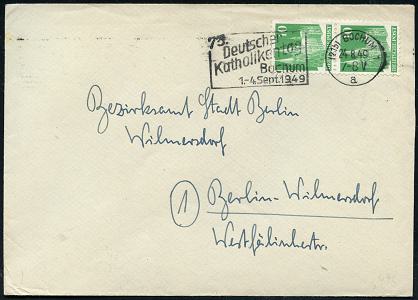 73.
Deutscher
Katholikentag
Bochum
1.-4.Sept.1949
10
BOCHUM
24.8.49
7-8 V
a
Bezirksamt Stadt Berlin
Wilmersdorf
1 Berlin-Wilmersdorf